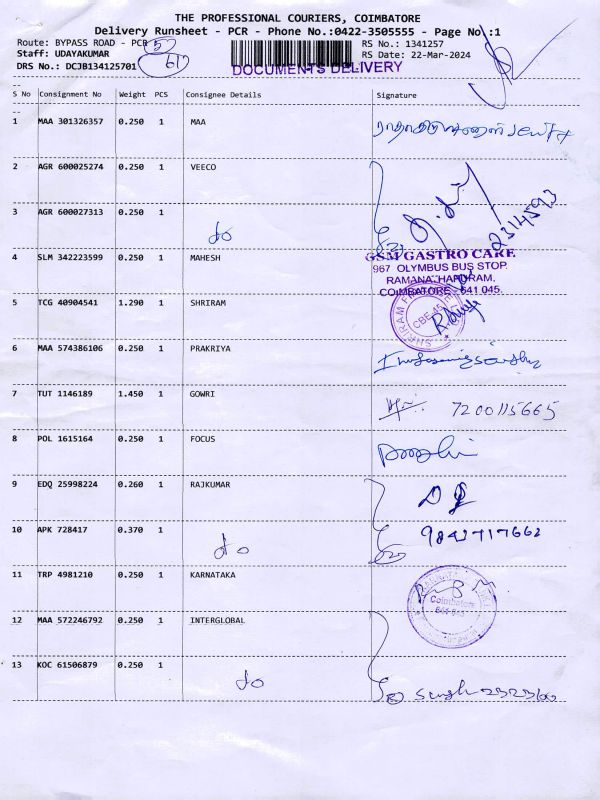 THE PROFESSIONAL COURIERS, COIMBATORE
Delivery Runsheet - PCR - Phone No.:0422-3505555 - Page No.:1
Route: BYPASS ROAD - PCR RS No.: 1341257
Staff: UDAYAKUMAR RS Date: 22-Mar-2024
DRS No.: DCJB134125701
DOCUMENTS DELIVERY
S No Consignment No Weight PCS Consignee Details Signature
1 MAA 301326357 0.250 1 MAA
2 AGR 600025274 0.250 1 VEECO
3 AGR 600027313 0.250 1
do
2314593
4 SLM 342223599 0.250 1 MAHESH
GSM GASTRO CARE
967 OLYMBUS BUS STOP.
RAMANATHAPURAM.
COIMBATORE - 641 045.
5 TCG 40904541 1.290 1 SHRIRAM
CBE-45
6 MAA 574386106 0.250 1 PRAKRIYA
7 TUT 1146189 1.450 1 GOWRI
7200115665
8 POL 1615164 0.250 1 FOCUS
9 EDQ 25998224 0.260 1 RAJKUMAR
10 APK 728417 0.370 1
do
9842717662
11 TRP 4981210 0.250 1 KARNATAKA
Coimbatore
12 MAA 572246792 0.250 1 INTERGLOBAL
13 KOC 61506879 0.250 1
do